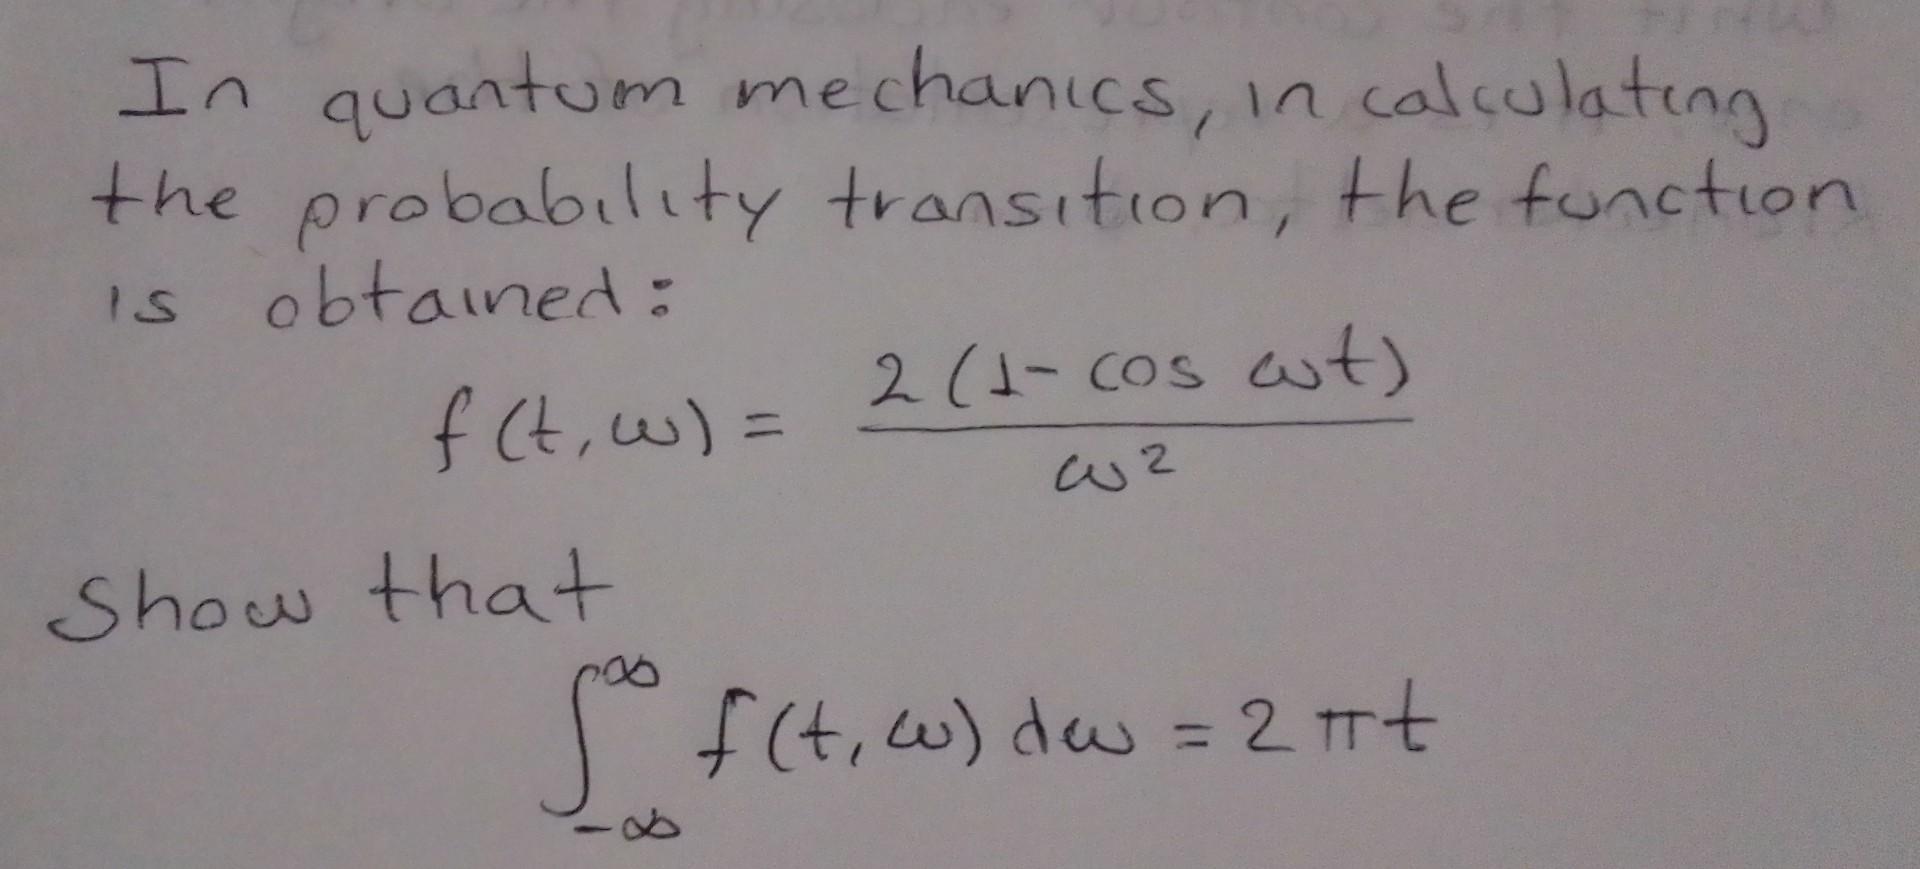 In quantum mechanics, in calculating
the probability transition, the function
is obtained:
f(t, ω) = 2(1 - cos ωt) / ω²
Show that
∫_{-∞}^{∞} f(t, ω) dω = 2πt